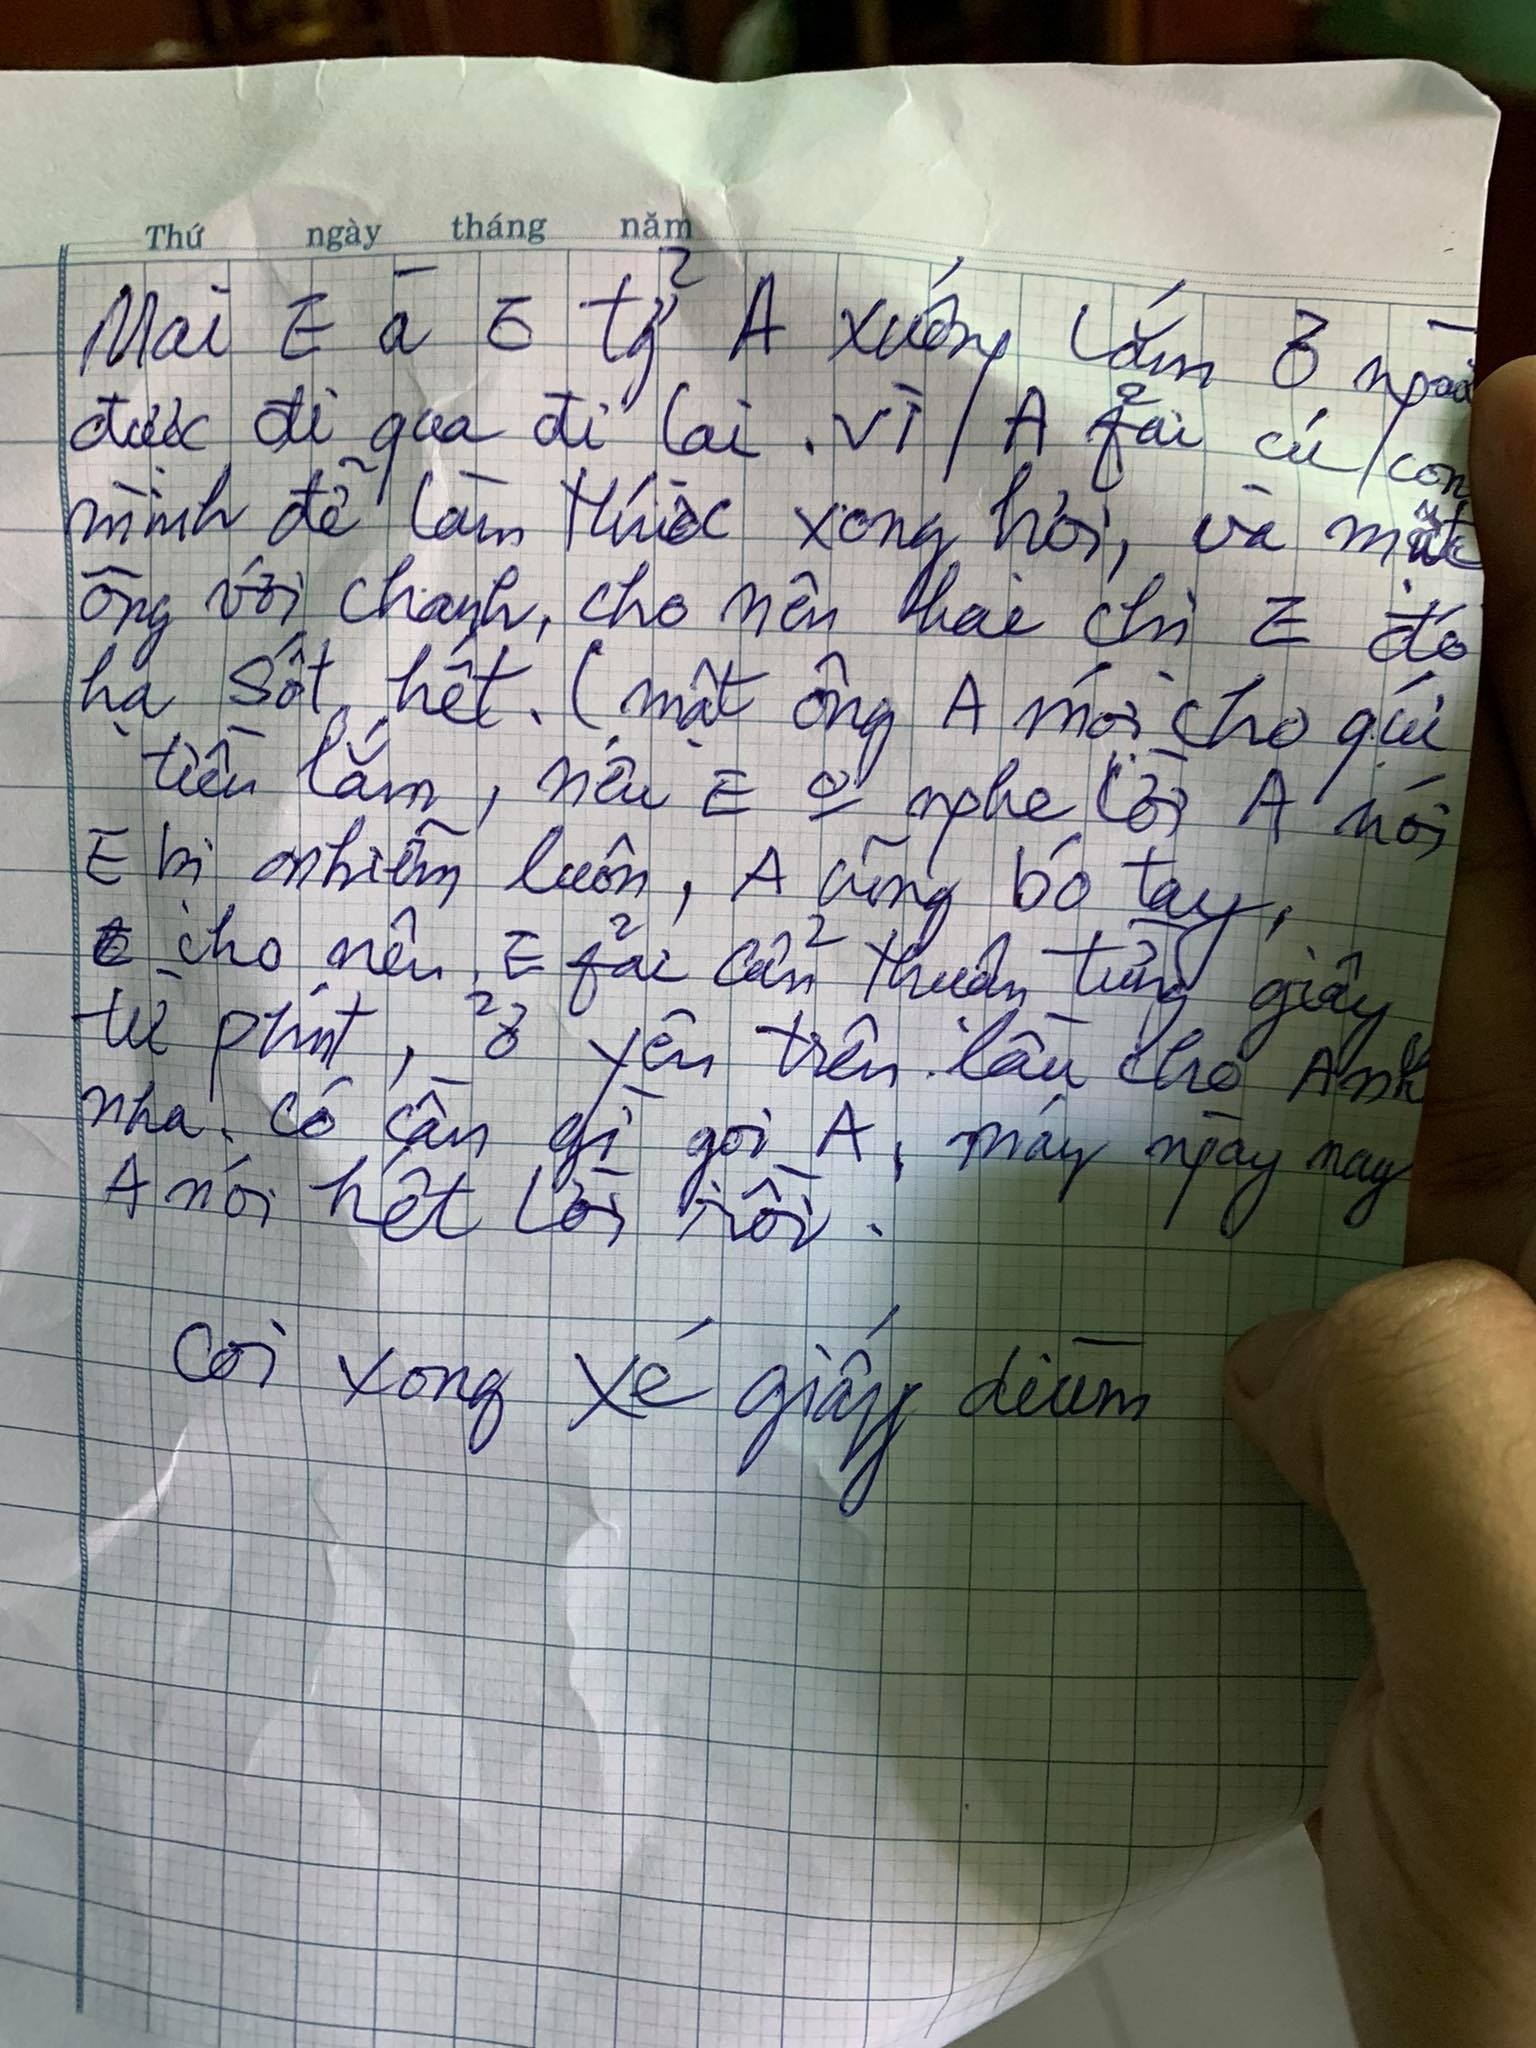 Thứ ngày tháng năm
Mai E à E tỷ A xuống lắm
được đi qua đi lại. Vì A fải cú con
mình để làm thuốc xong hơi, và mật
ông với chanh, cho nên hai chị E đó
hạ sốt hết. (mật ông A mới cho quí
tiền lắm, nếu E 0 nghe lời A nói
E bị nhiễm luôn, A cũng bó tay,
cho nên E fải cẩn thận từng giây
từ phút, ở yên trên lầu cho Anh
nha. có cần gì gọi A, mấy ngày nay
A nói hết lời rồi.
Coi xong xé giấy dùm